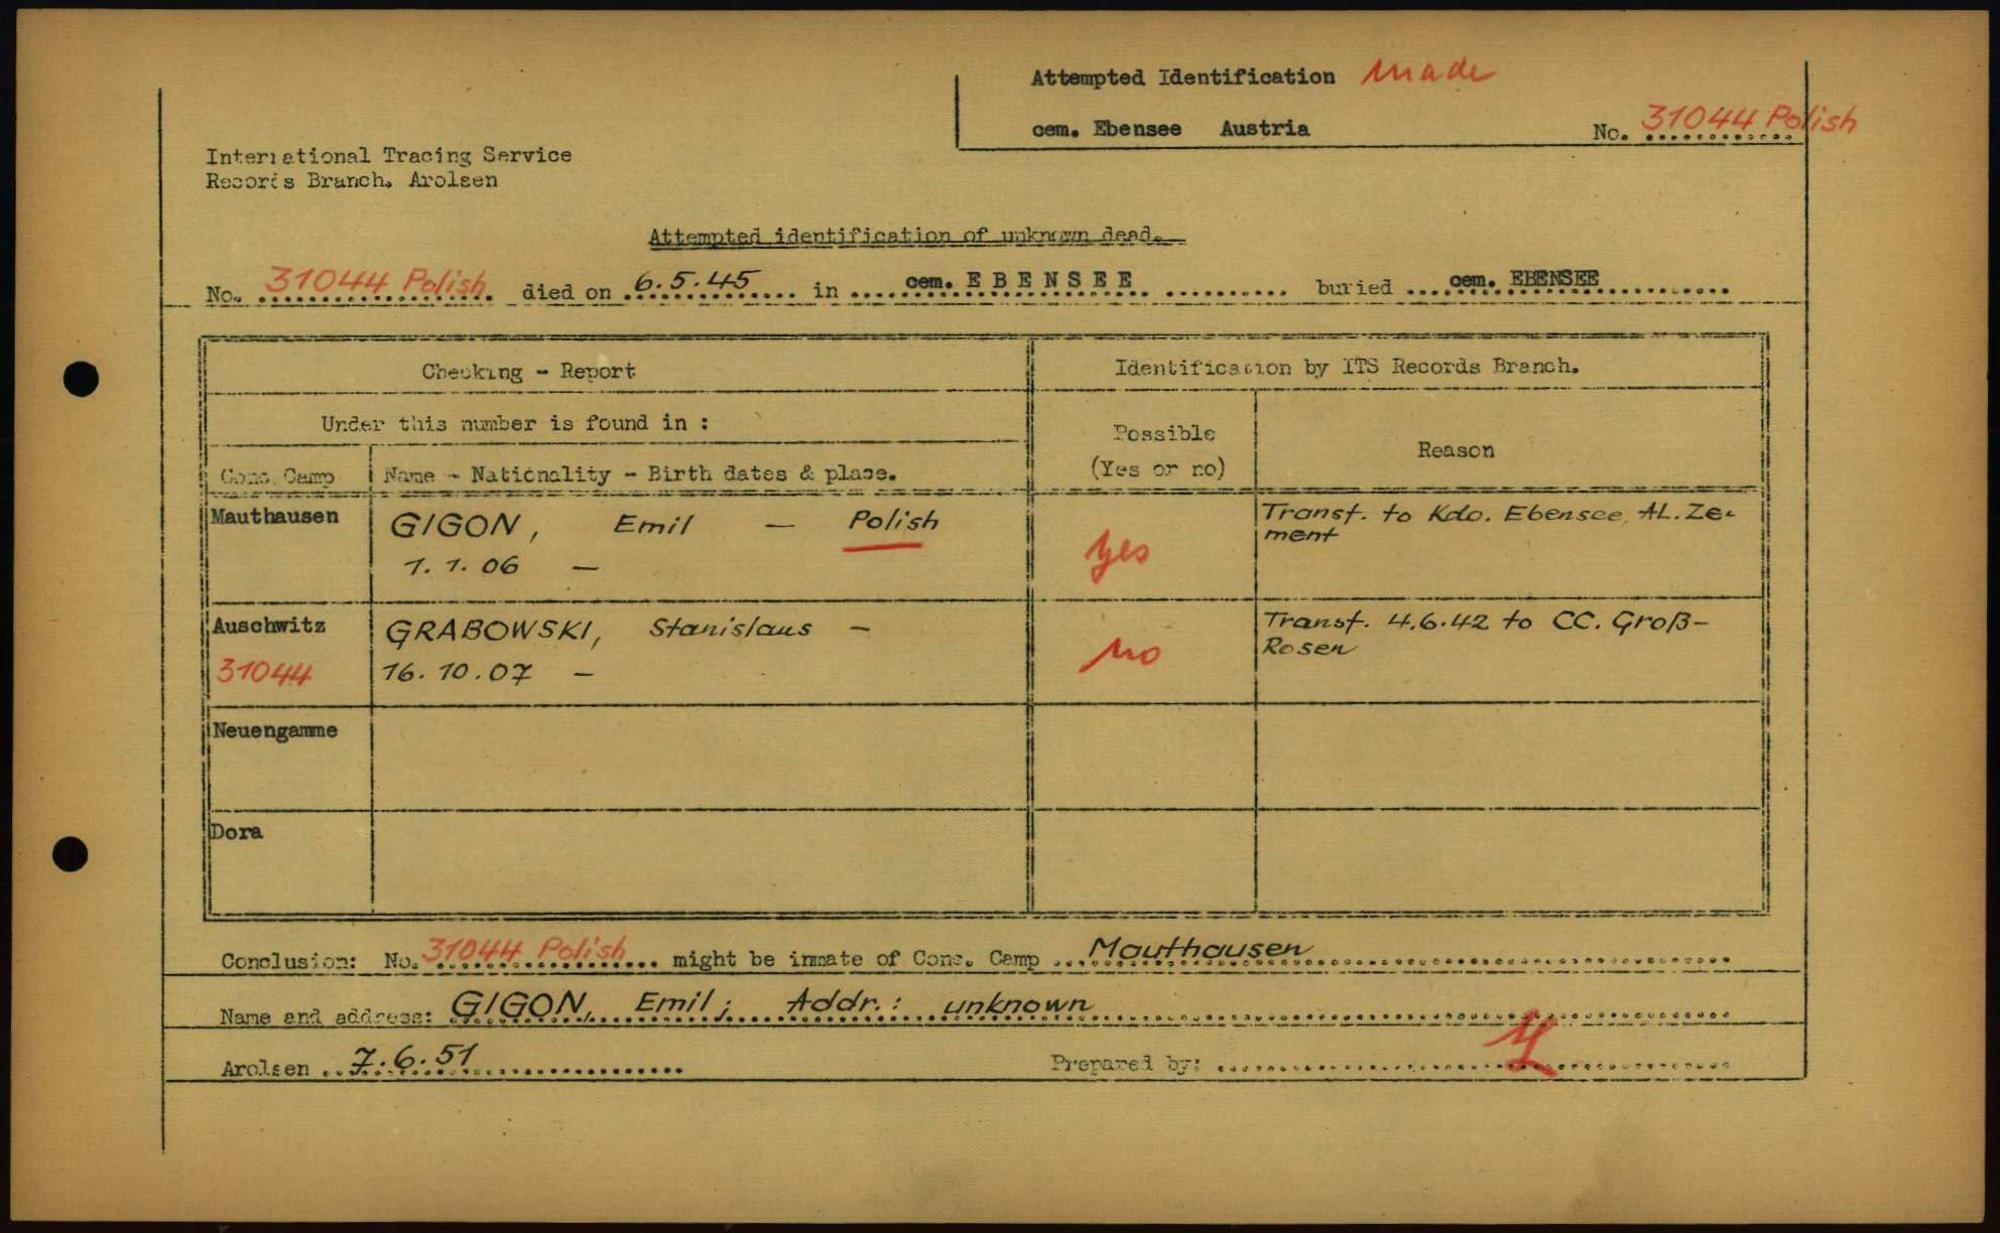 Attempted Identification made
cem. Ebensee Austria No. 31044 Polish
International Tracing Service
Records Branch. Arolsen
Attempted identification of unknown dead.
No. 31044 Polish died on 6.5.45 in cem. EBENSEE buried cem. EBENSEE
Checking - Report
Identification by ITS Records Branch.
Under this number is found in :
Possible
(Yes or no)
Reason
Conc. Camp
Name - Nationality - Birth dates & place.
Mauthausen
GIGON, Emil — Polish
1.1.06 —
yes
Transf. to Kdo. Ebensee, AL. Ze-
ment
Auschwitz
31044
GRABOWSKI, Stanislaus —
16.10.07 —
no
Transf. 4.6.42 to CC. Groß-
Rosen
Neuengamme
Dora
Conclusion: No. 31044 Polish might be inmate of Conc. Camp Mauthausen
Name and address: GIGON, Emil; Addr.: unknown
Arolsen 7.6.51 Prepared by: